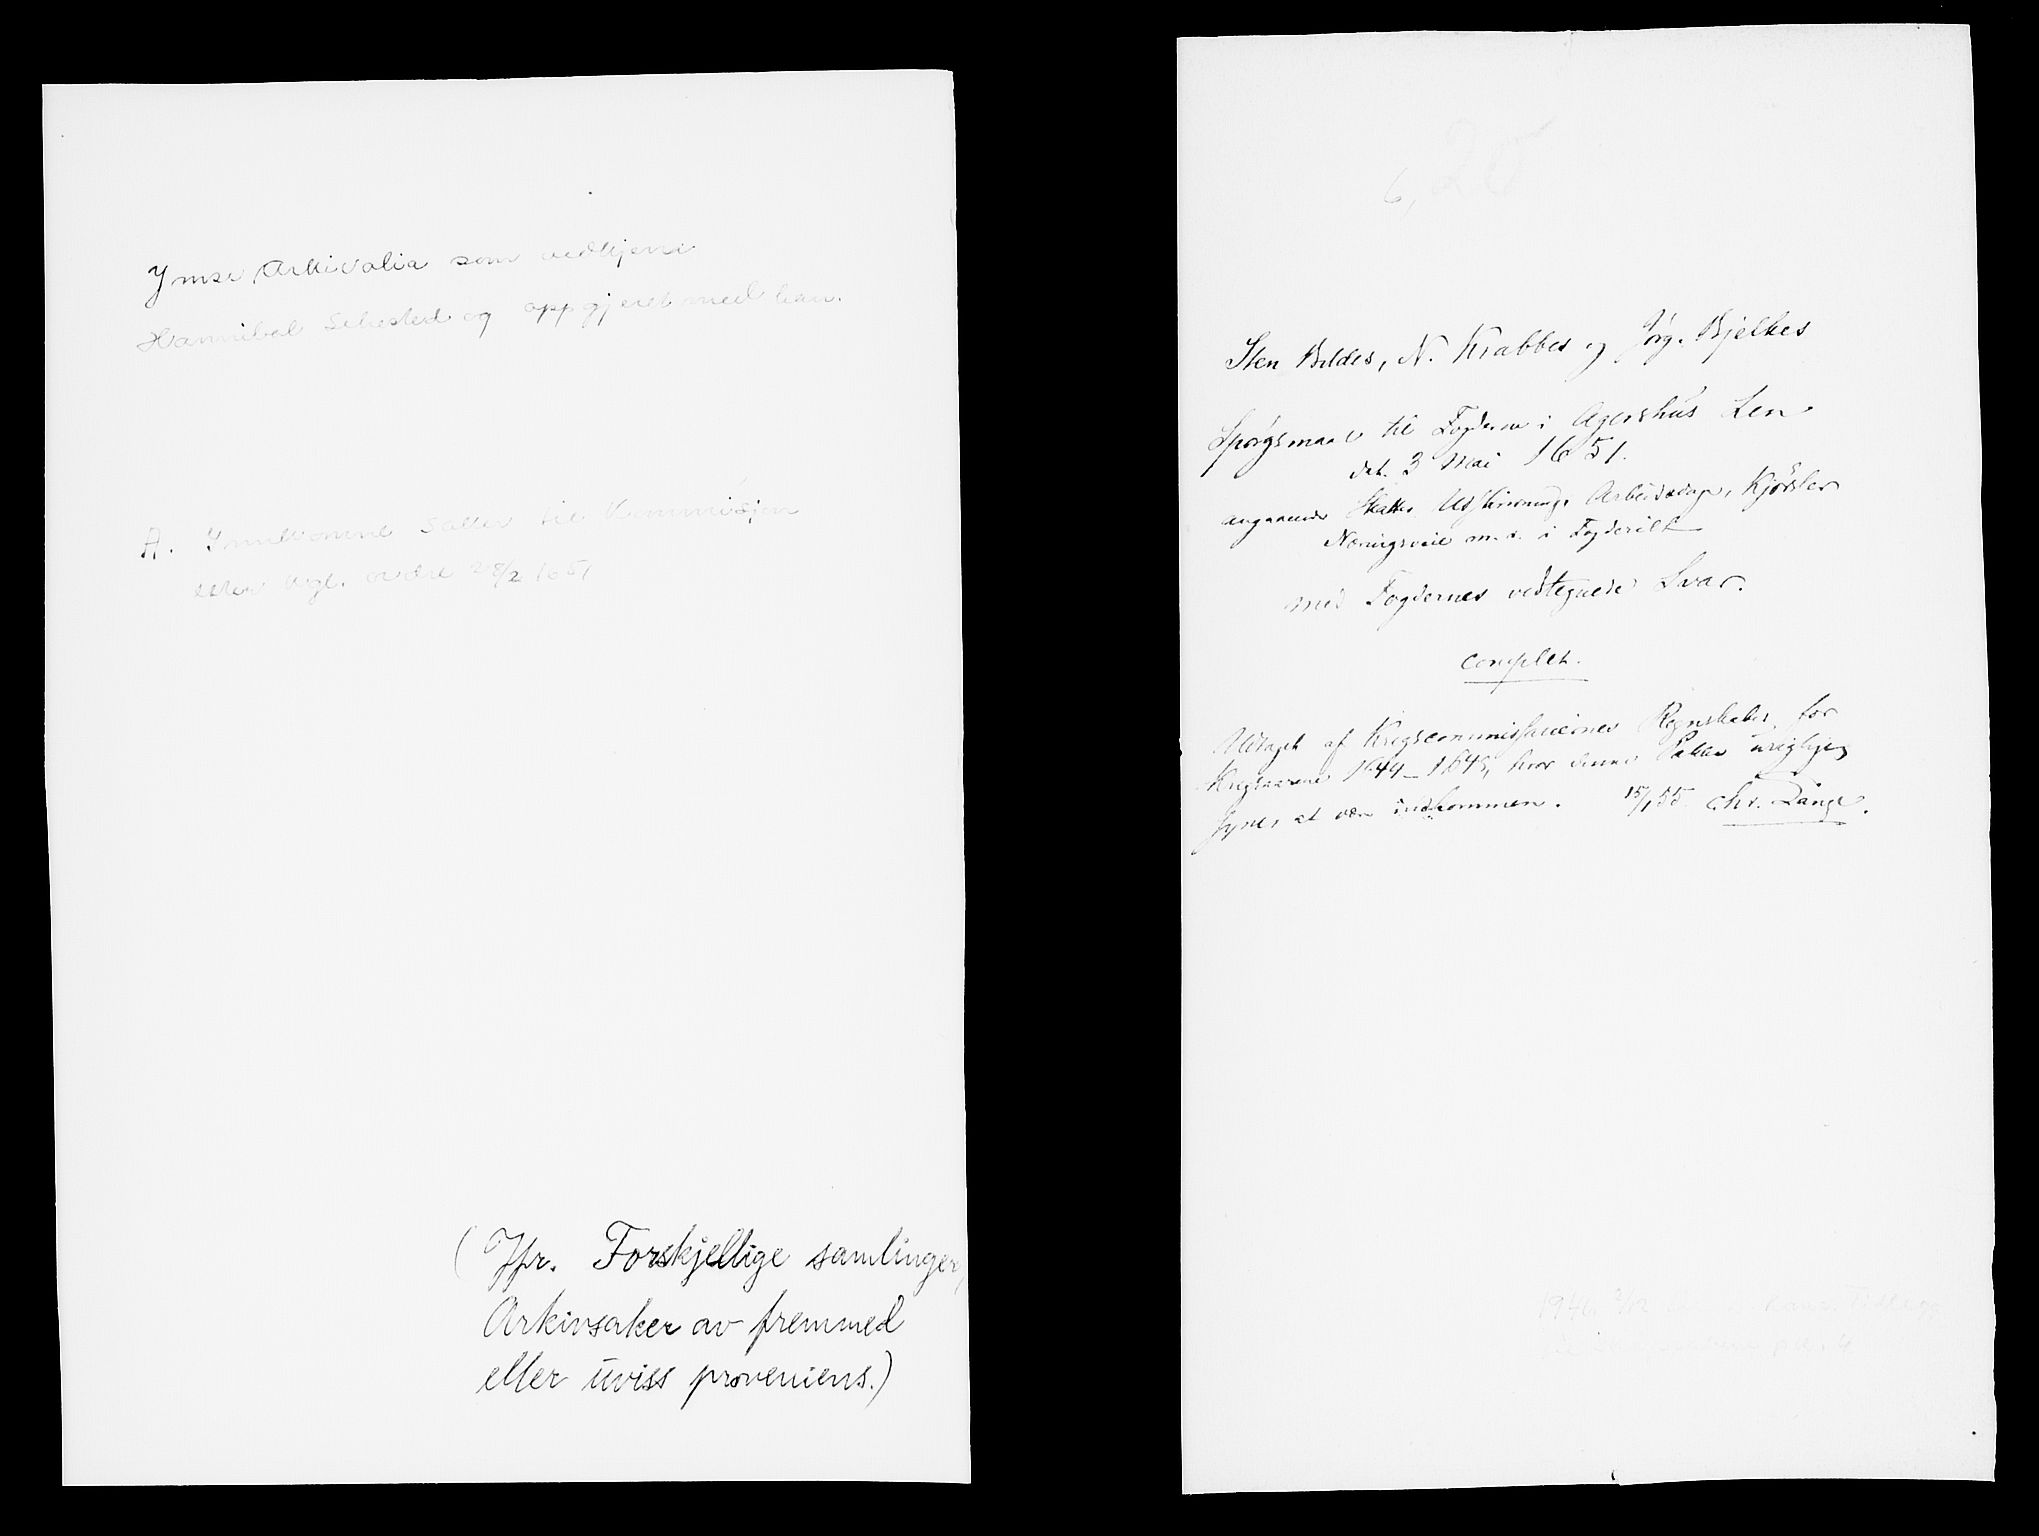 Ymse Arkivalia som vedkjene
Hannibal Sehested og oppgjeret med han.
A. Innkomne saker til Kommisjen
etter kgl. ordre 28/2 1651
(Jfr. Forskjellige samlinger,
Arkivsaker av fremmed
eller uviss proveniens.)
6, 20
Sten Bildes, N. Krabbes og Jørg. Bjelkes
Spørgsmaal til Fogderne i Agershus Len
dat. 3 Mai 1651.
angaaende Skatter Udskrivning, Arbeidsdage, Kjørsler
Næringsveie m.v. i Fogderiet
med Fogdernes vedtegnede Svar.
complet.
Udtaget af Krigscommissairernes Regnskaber for
Krigsaarene 1644–1645, hvor denne Pakke urigtigen
synes at være indkommen. 15/1 55. Chr. Lange.
1946